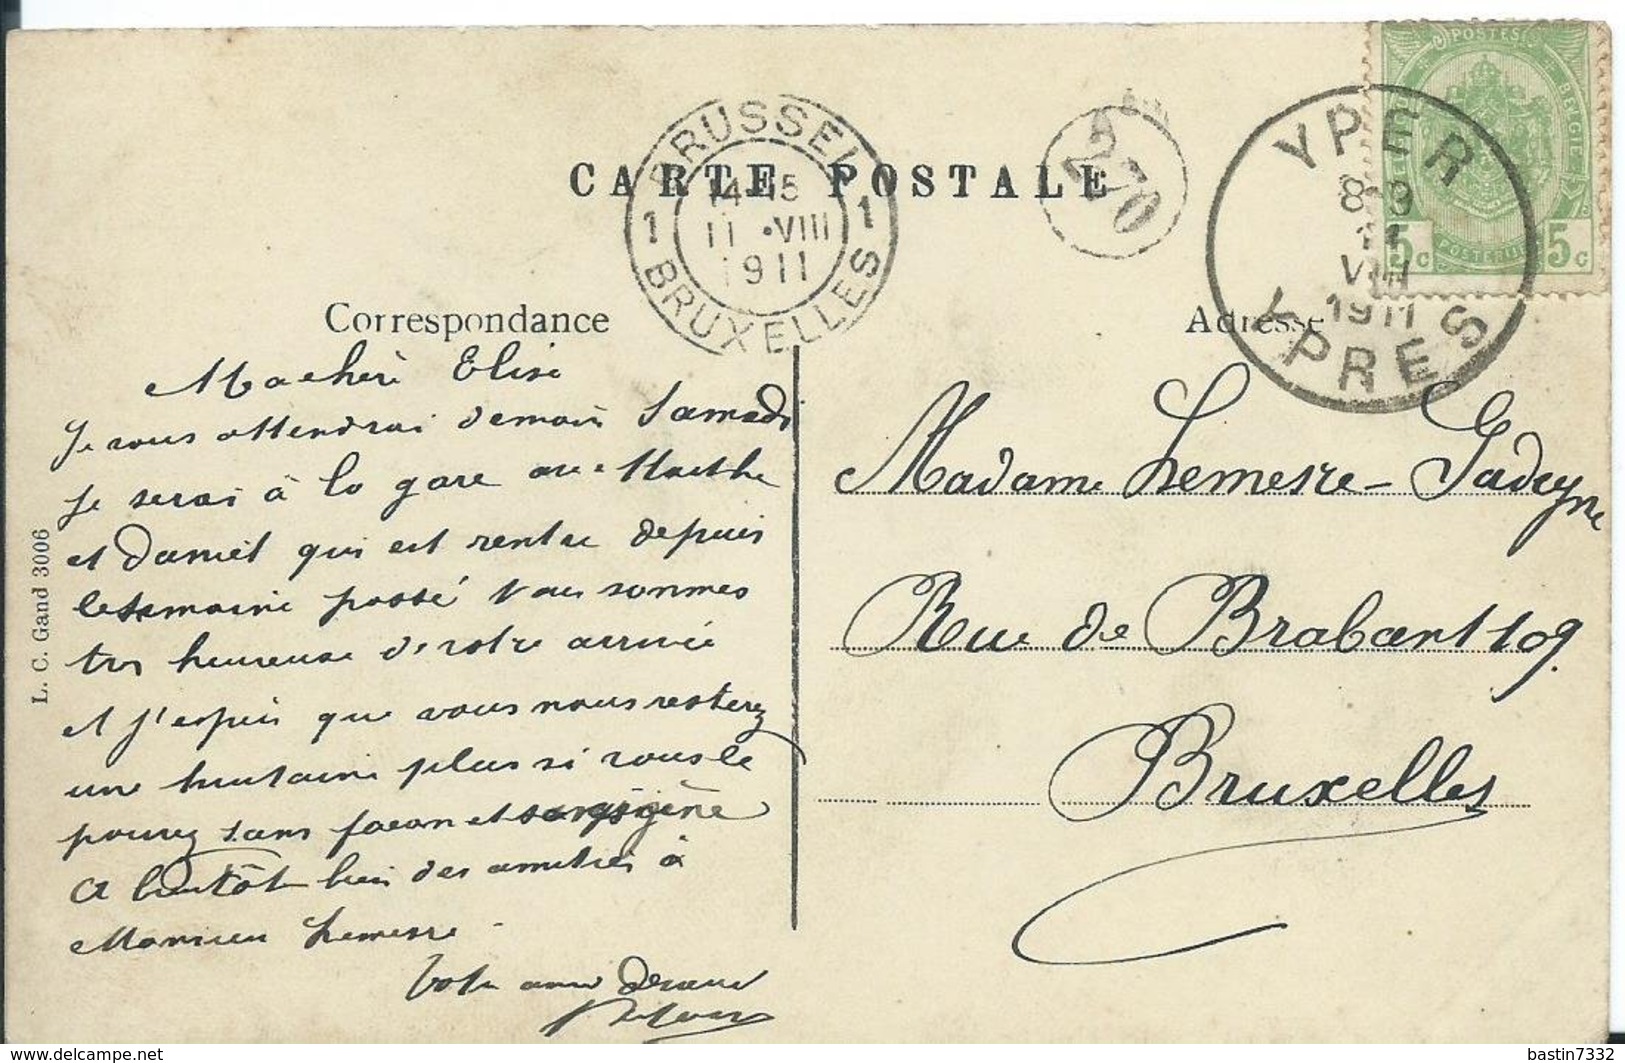 CARTE POSTALE
BRUSSEL
1 14-15 1
11 • VIII
1911
BRUXELLES
270
YPER
8-9
11
VIII
1911
YPRES
POSTES
BELGIE
5 c 5 c
Correspondance
Ma chèrè Elise
Je vous attendrai demain Samedi
Je serai à la gare avec Marthe
et Daniel qui est rentré depuis
la semaine passé Nous sommes
très heureuse de votre arrivée
et j'espèr que vous nous resterez
une huitaine plus si vous le
pouvez sans facon et sans gène
A bientôt bien des amitiés à
Monsieur Lemesre
Votre amie
Adresse
Madame Lemesre-Gadeyne
Rue de Brabant 109.
Bruxelles
L. C. Gand 3006
bastin7332